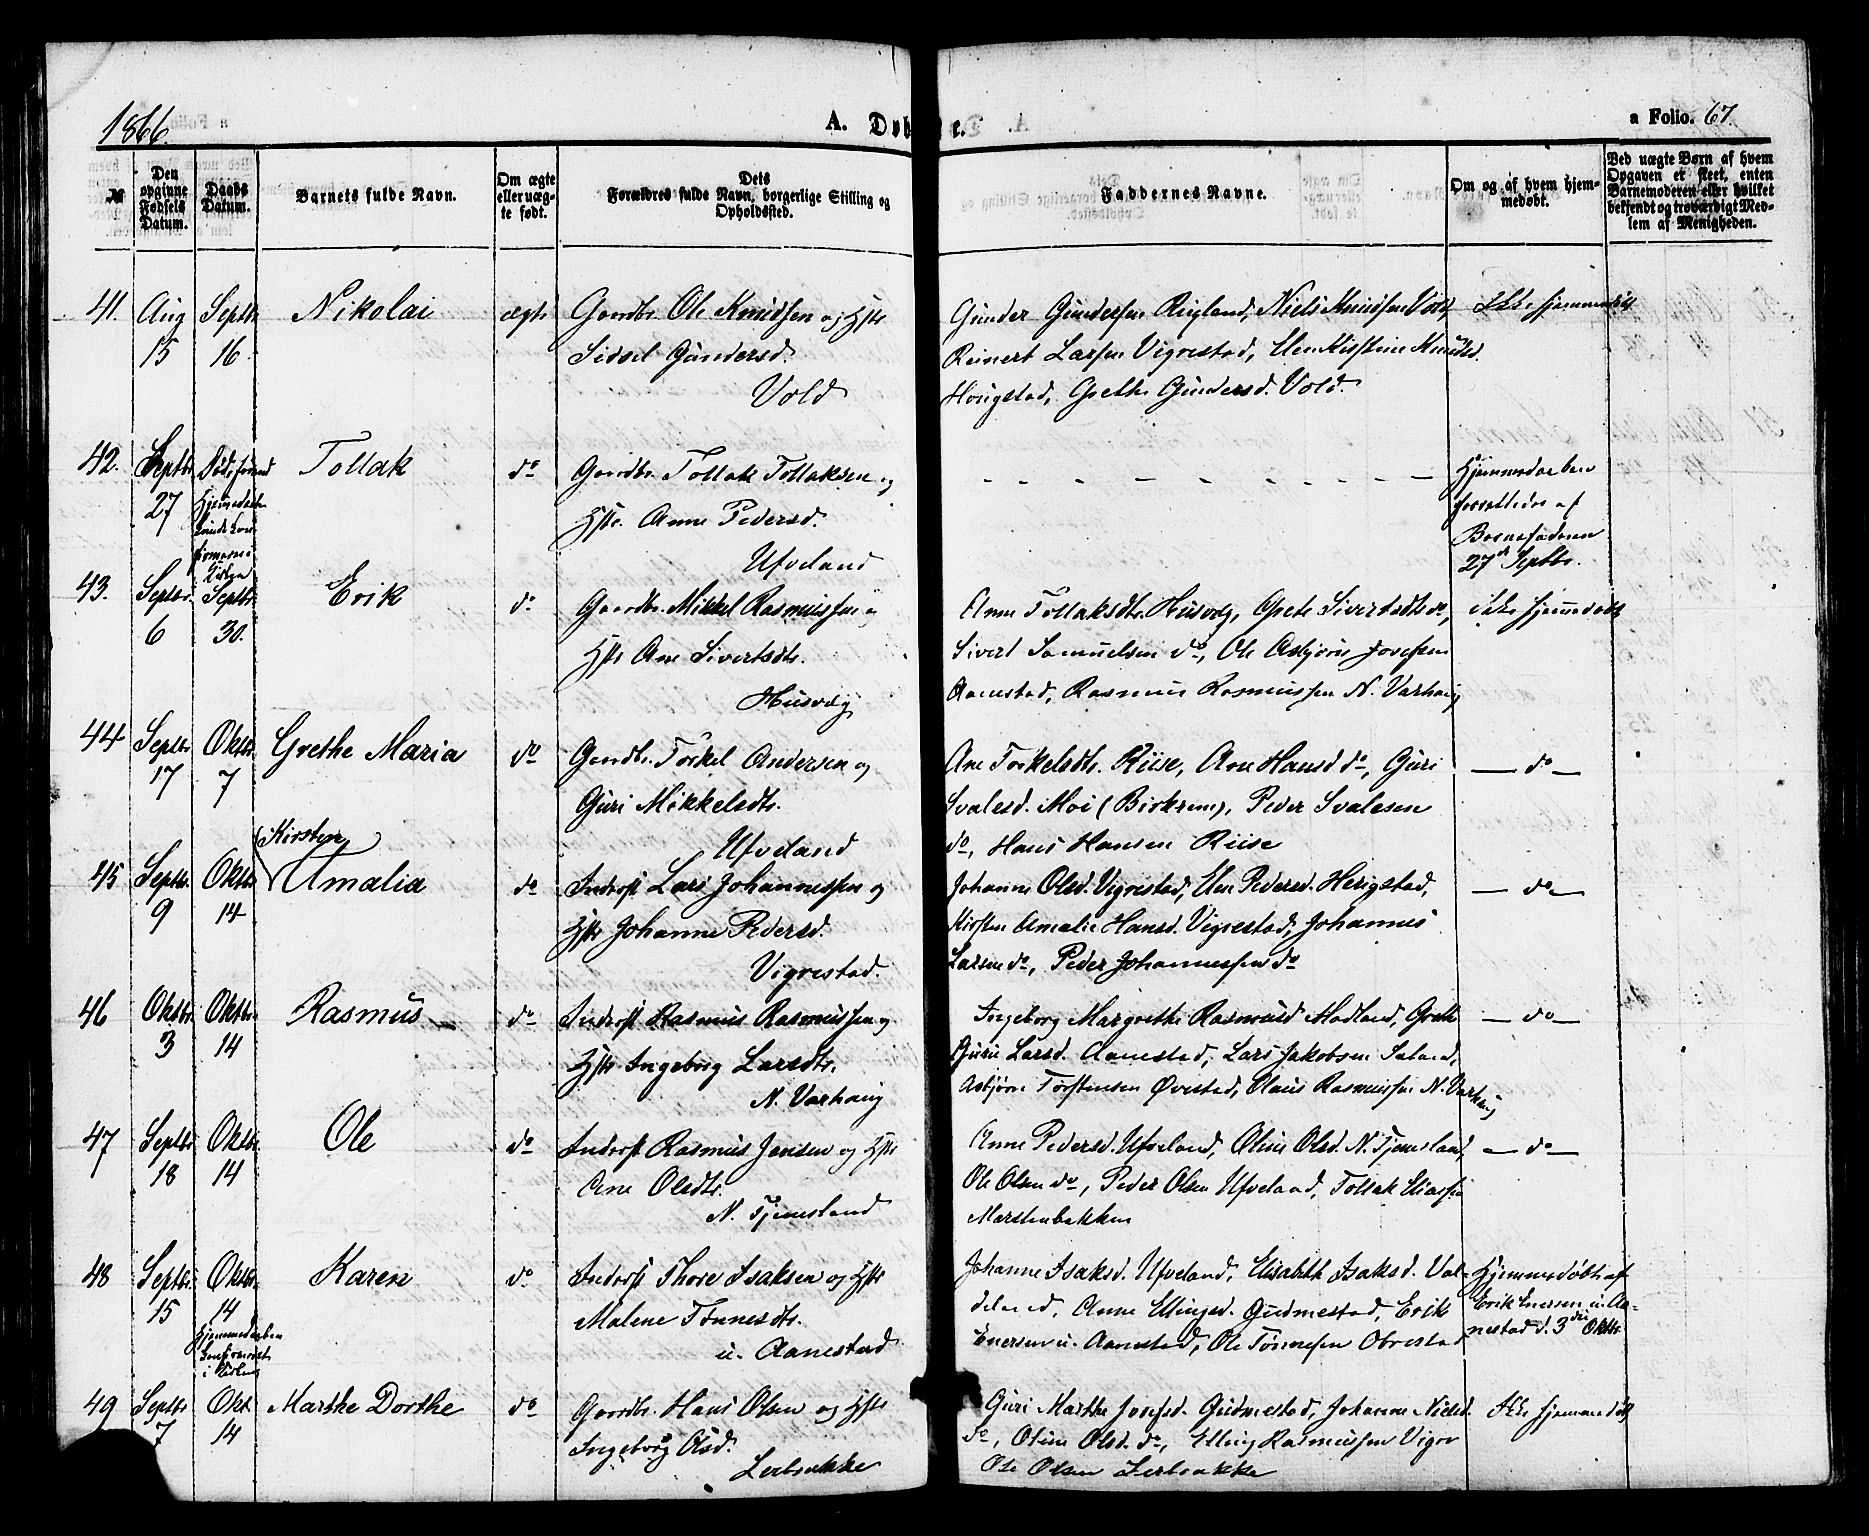 1866.
A. Døbte.
a Folio. 67.
№
Den opgivne Fødsels Datum.
Daabs Datum.
Barnets fulde Navn.
Om ægte eller uægte født.
Dets Forældres fulde Navn, borgerlige Stilling og Opholdssted.
Faddernes Navne.
Om og af hvem hjemmedøbt.
Ved uægte Børn af hvem Opgaven er skeet, enten Barnemoderen eller hvilket bekjendt og troværdigt Medlem af Menigheden.
41. Aug 15 Septb 16. Nikolai ægte
Gaardbr. Ole Knudsen og Hstr
Sidsel Gundersd.
Vold
Gunder Gundersen Riigland, Niels Knudsen Vold,
Reinert Larsen Vigrestad, Elen Kirstine Knudsd.
Hougstad, Grethe Gundersd. Vold.
Ikke hjemmedøbt
42. Septbr. 27 Tollak do
Gaardbr. Tollak Tollaksen og
Hstr. Anne Pedersd.
Ufveland
Hjemmedaaben
forrettedes af
Barnefaderen
27de Septbr.
43. Septbr. 6 Septbr. 30. Erik do
Gaardbr. Mikkel Rasmussen og
Hstr Ane Sivertsdtr.
Husvæg
Anne Tollaksdtr. Husvæg, Grete Sivertsdtr do,
Sivert Samuelsen do, Ole Asbjørn Josefsen
Aanestad, Rasmus Rasmussen N. Varhoug
ikke hjemmedøbt
44 Septbr 17 Oktbr. 7 Grethe Maria do
Gaardbr. Torkel Andersen og
Guri Mikkelsdtr.
Ufveland
Ane Torkelsdtr. Riise, Ane Hansd do, Guri
Svalesd. Moi (Birkrem), Peder Svalesen
do, Hans Hansen Riise
— do —
45 Septbr. 9 Oktbr 14 Kirsten Amalia do
Inderst Lars Johannessen og
Hstr Johanne Pedersd.
Vigrestad.
Johanne Olsd. Vigrestad, Elen Pedersd. Herigstad,
Kirsten Amalie Hansd. Vigrestad, Johannes
Larsen do, Peder Johannessen do
— do —
46 Oktbr. 3 Oktbr. 14 Rasmus do
Inderst Rasmus Rasmussen og
Hstr Ingeborg Larsdtr.
N. Varhaug
Ingeborg Margrethe Rasmusd Madland, Grethe
Gurie Larsd. Aanestad, Lars Jakobsen
Asbjørn Torstensen Øvestad, Claus Rasmussen N. Varhaug
— do —
47 Septbr 18 Oktbr 14 Ole do
Inderst Rasmus Jensen og Hstr
Ane Olsdtr.
N. Tjemsland
Anne Pedersd. Ufveland, Oline Olsd. N. Tjemsland,
Ole Olsen do, Peder Olsen Ufveland, Tollak Eliassen
Marstenbakken
— do —
48 Septbr. 15 Oktbr. 14 Karen do
Hjemmedaaben
confirmeret
i Kirken
Inderst Thore Isaksen og Hstr
Malene Tønnesdtr.
u. Aanestad
Johanne Isaksd. Ufveland, Elisabeth Isaksd. Vodeland,
Anne Ellingsd. Gudmestad, Erik
Enersen u. Aanestad, Ole Tønnesen Obrestad
Hjemmedøbt af
Erik Enersen u. Aanestad
d. 3die Oktbr.
49 Septbr 7 Okt. 14 Marthe Dorthe do
Gaardbr. Hans Olsen og Hstr
Ingeborg Olsd.
Lerbrække
Guri Marthe Josefsd. Gudmestad, Johanne Nielsd.
do, Oline Olsd. do, Elling Rasmussen Vigre
Ole Olsen Lerbrække
Ikke hjemmedøbt